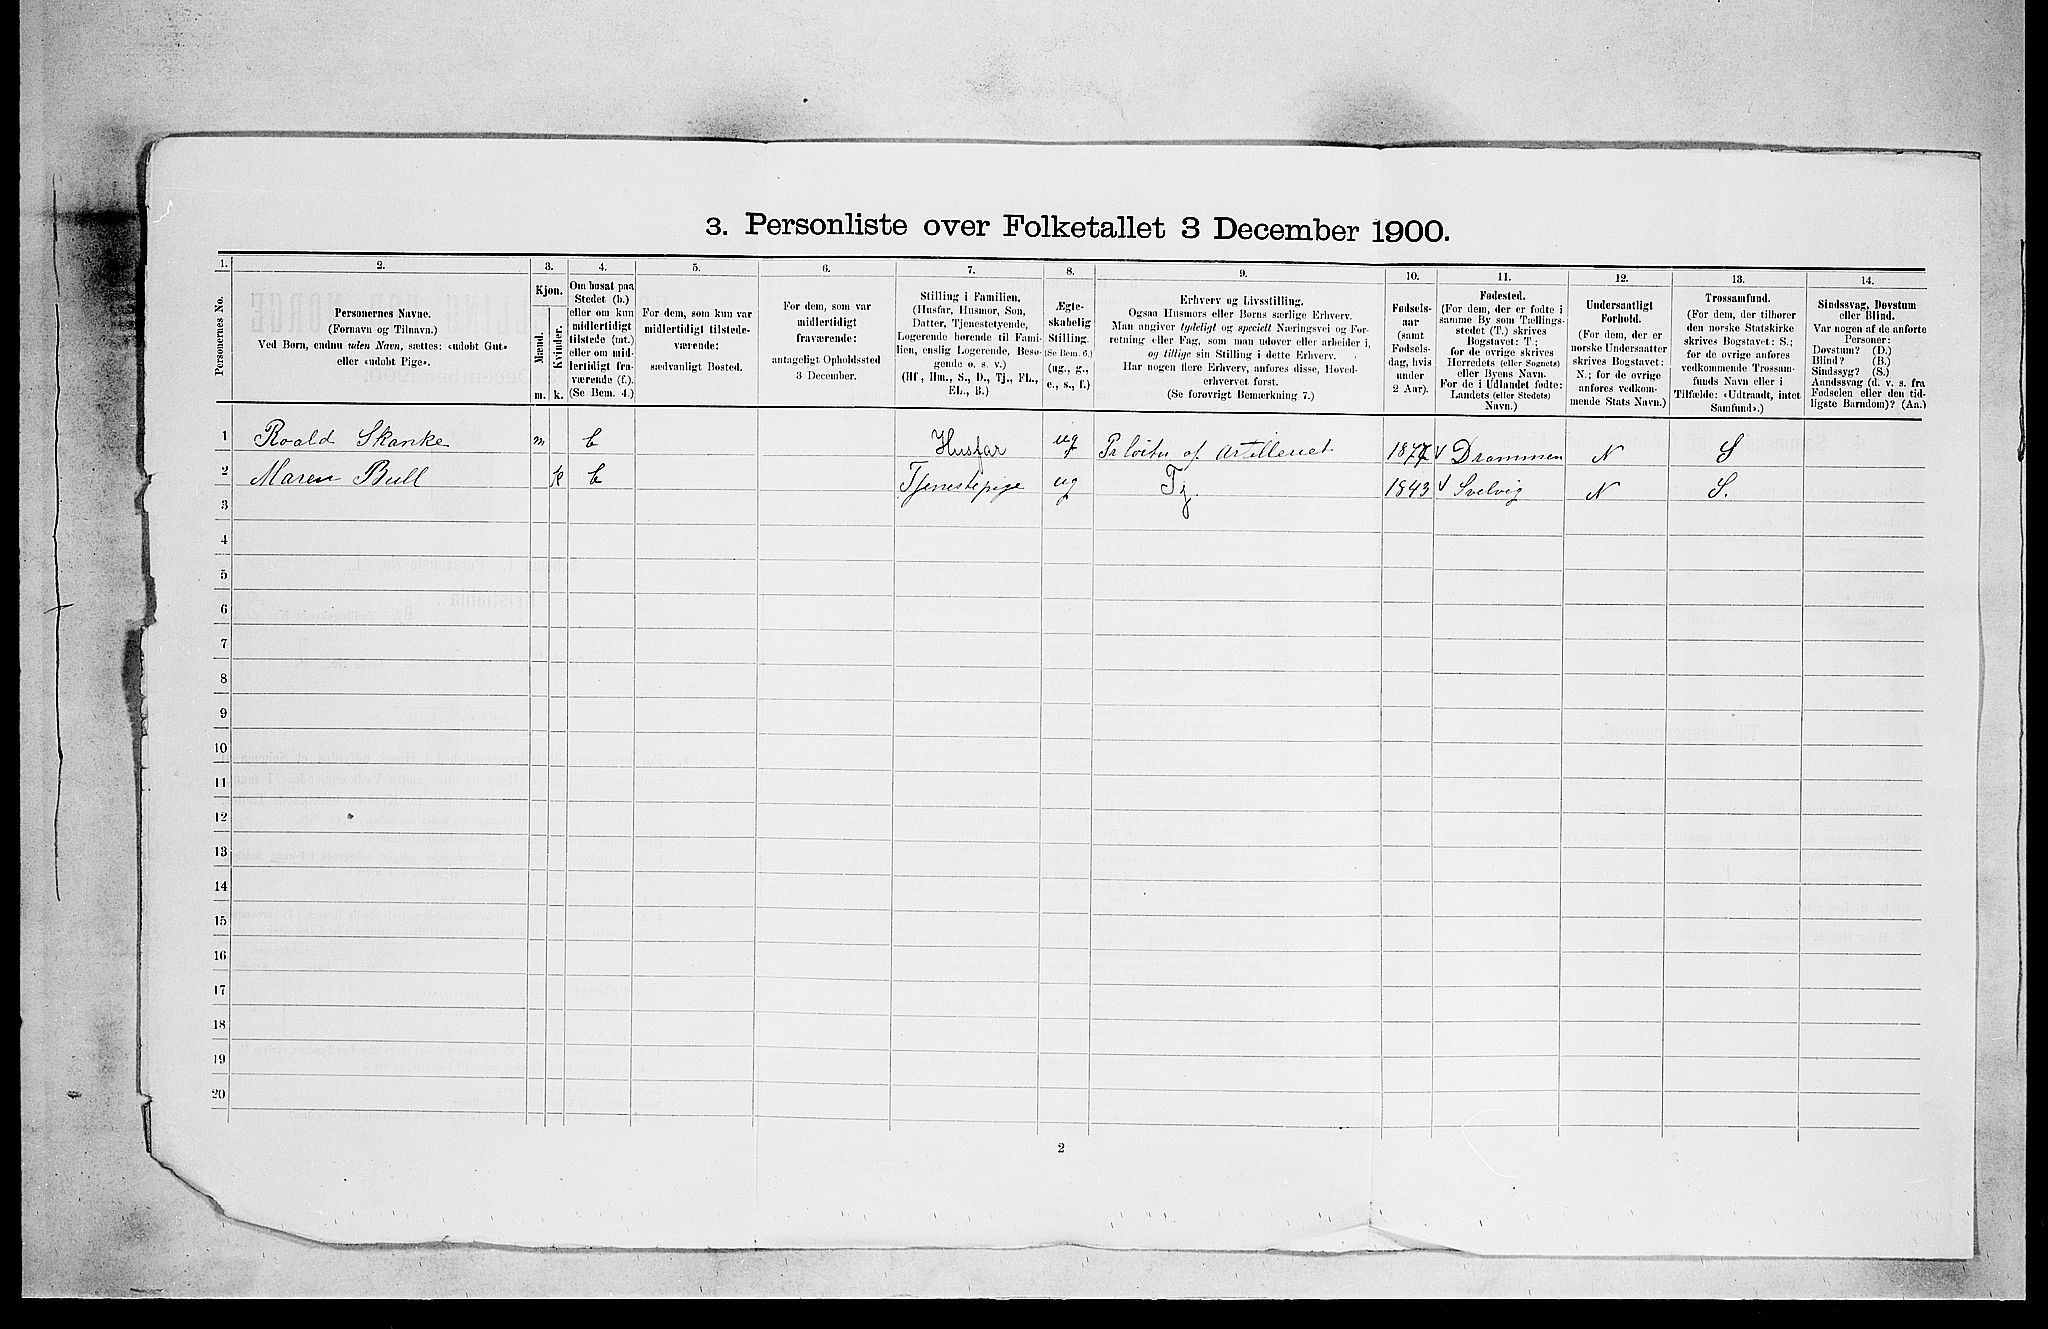 3. Personliste over Folketallet 3 December 1900.
1. 2. 3. 4. 5. 6. 7. 8. 9. 10. 11. 12. 13. 14.
Personernes No.
Personernes Navne.
(Fornavn og Tilnavn.)
Ved Børn, endnu uden Navn, sættes: «udøbt Gut»
eller «udøbt Pige».
Kjøn.
Mænd.
Kvinder.
m. k.
Om bosat paa
Stedet (b.)
eller om kun
midlertidigt
tilstede (mt.)
eller om mid-
lertidigt fra-
værende (f.).
(Se Bem. 4.)
For dem, som kun var
midlertidigt tilstede-
værende:
sædvanligt Bosted.
For dem, som var
midlertidigt
fraværende:
antageligt Opholdssted
3 December.
Stilling i Familien.
(Husfar, Husmor, Søn,
Datter, Tjenestetyende,
Logerende hørende til Fami-
lien, enslig Logerende, Besø-
gende o. s. v.)
(Hf, Hm., S., D., Tj., FL.,
EL., B.)
Ægte-
skabelig
Stilling.
(Se Bem. 6.)
(ug., g.,
e., s., f.)
Erhverv og Livsstilling.
Ogsaa Husmors eller Børns særlige Erhverv.
Man angiver tydeligt og specielt Næringsvei og For-
retning eller Fag, som man udøver eller arbeider i,
og tillige sin Stilling i dette Erhverv.
Har nogen flere Erhverv, anføres disse, Hoved-
erhvervet først.
(Se forøvrigt Bemærkning 7.)
Fødsels-
aar
(samt
Fødsels-
dag, hvis
under
2 Aar).
Fødested.
(For dem, der er fødte i
samme By som Tællings-
stedet (T.) skrives
Bogstavet: T.;
for de øvrige skrives
Herredets (eller Sognets)
eller Byens Navn.
For de i Udlandet fødte:
Landets (eller Stedets)
Navn.)
Undersaatligt
Forhold.
(For dem, der er
norske Undersaatter
skrives Bogstavet:
N.; for de øvrige
anføres vedkom-
mende Stats Navn.)
Trossamfund.
(For dem, der tilhører
den norske Statskirke
skrives Bogstavet: S.;
for de øvrige anføres
vedkommende Trossam-
funds Navn eller i
Tilfælde: «Udtraadt, intet
Samfund».)
Sindssvag, Døvstum
eller Blind.
Var nogen af de anførte
Personer:
Døvstum? (D.)
Blind? (B.)
Sindssyg? (S.)
Aandssvag (d. v. s. fra
Fødselen eller den tid-
ligste Barndom)? (Aa.)
1 Roald Skanke m b Husfar ug af Artilleriet 1877 Drammen N S
2 Maren Bull k b Tjenestepige ug Tj. 1843 Svelvig N S.
3
4
5
6
7
8
9
10
11
12
13
14
15
16
17
18
19
20
2